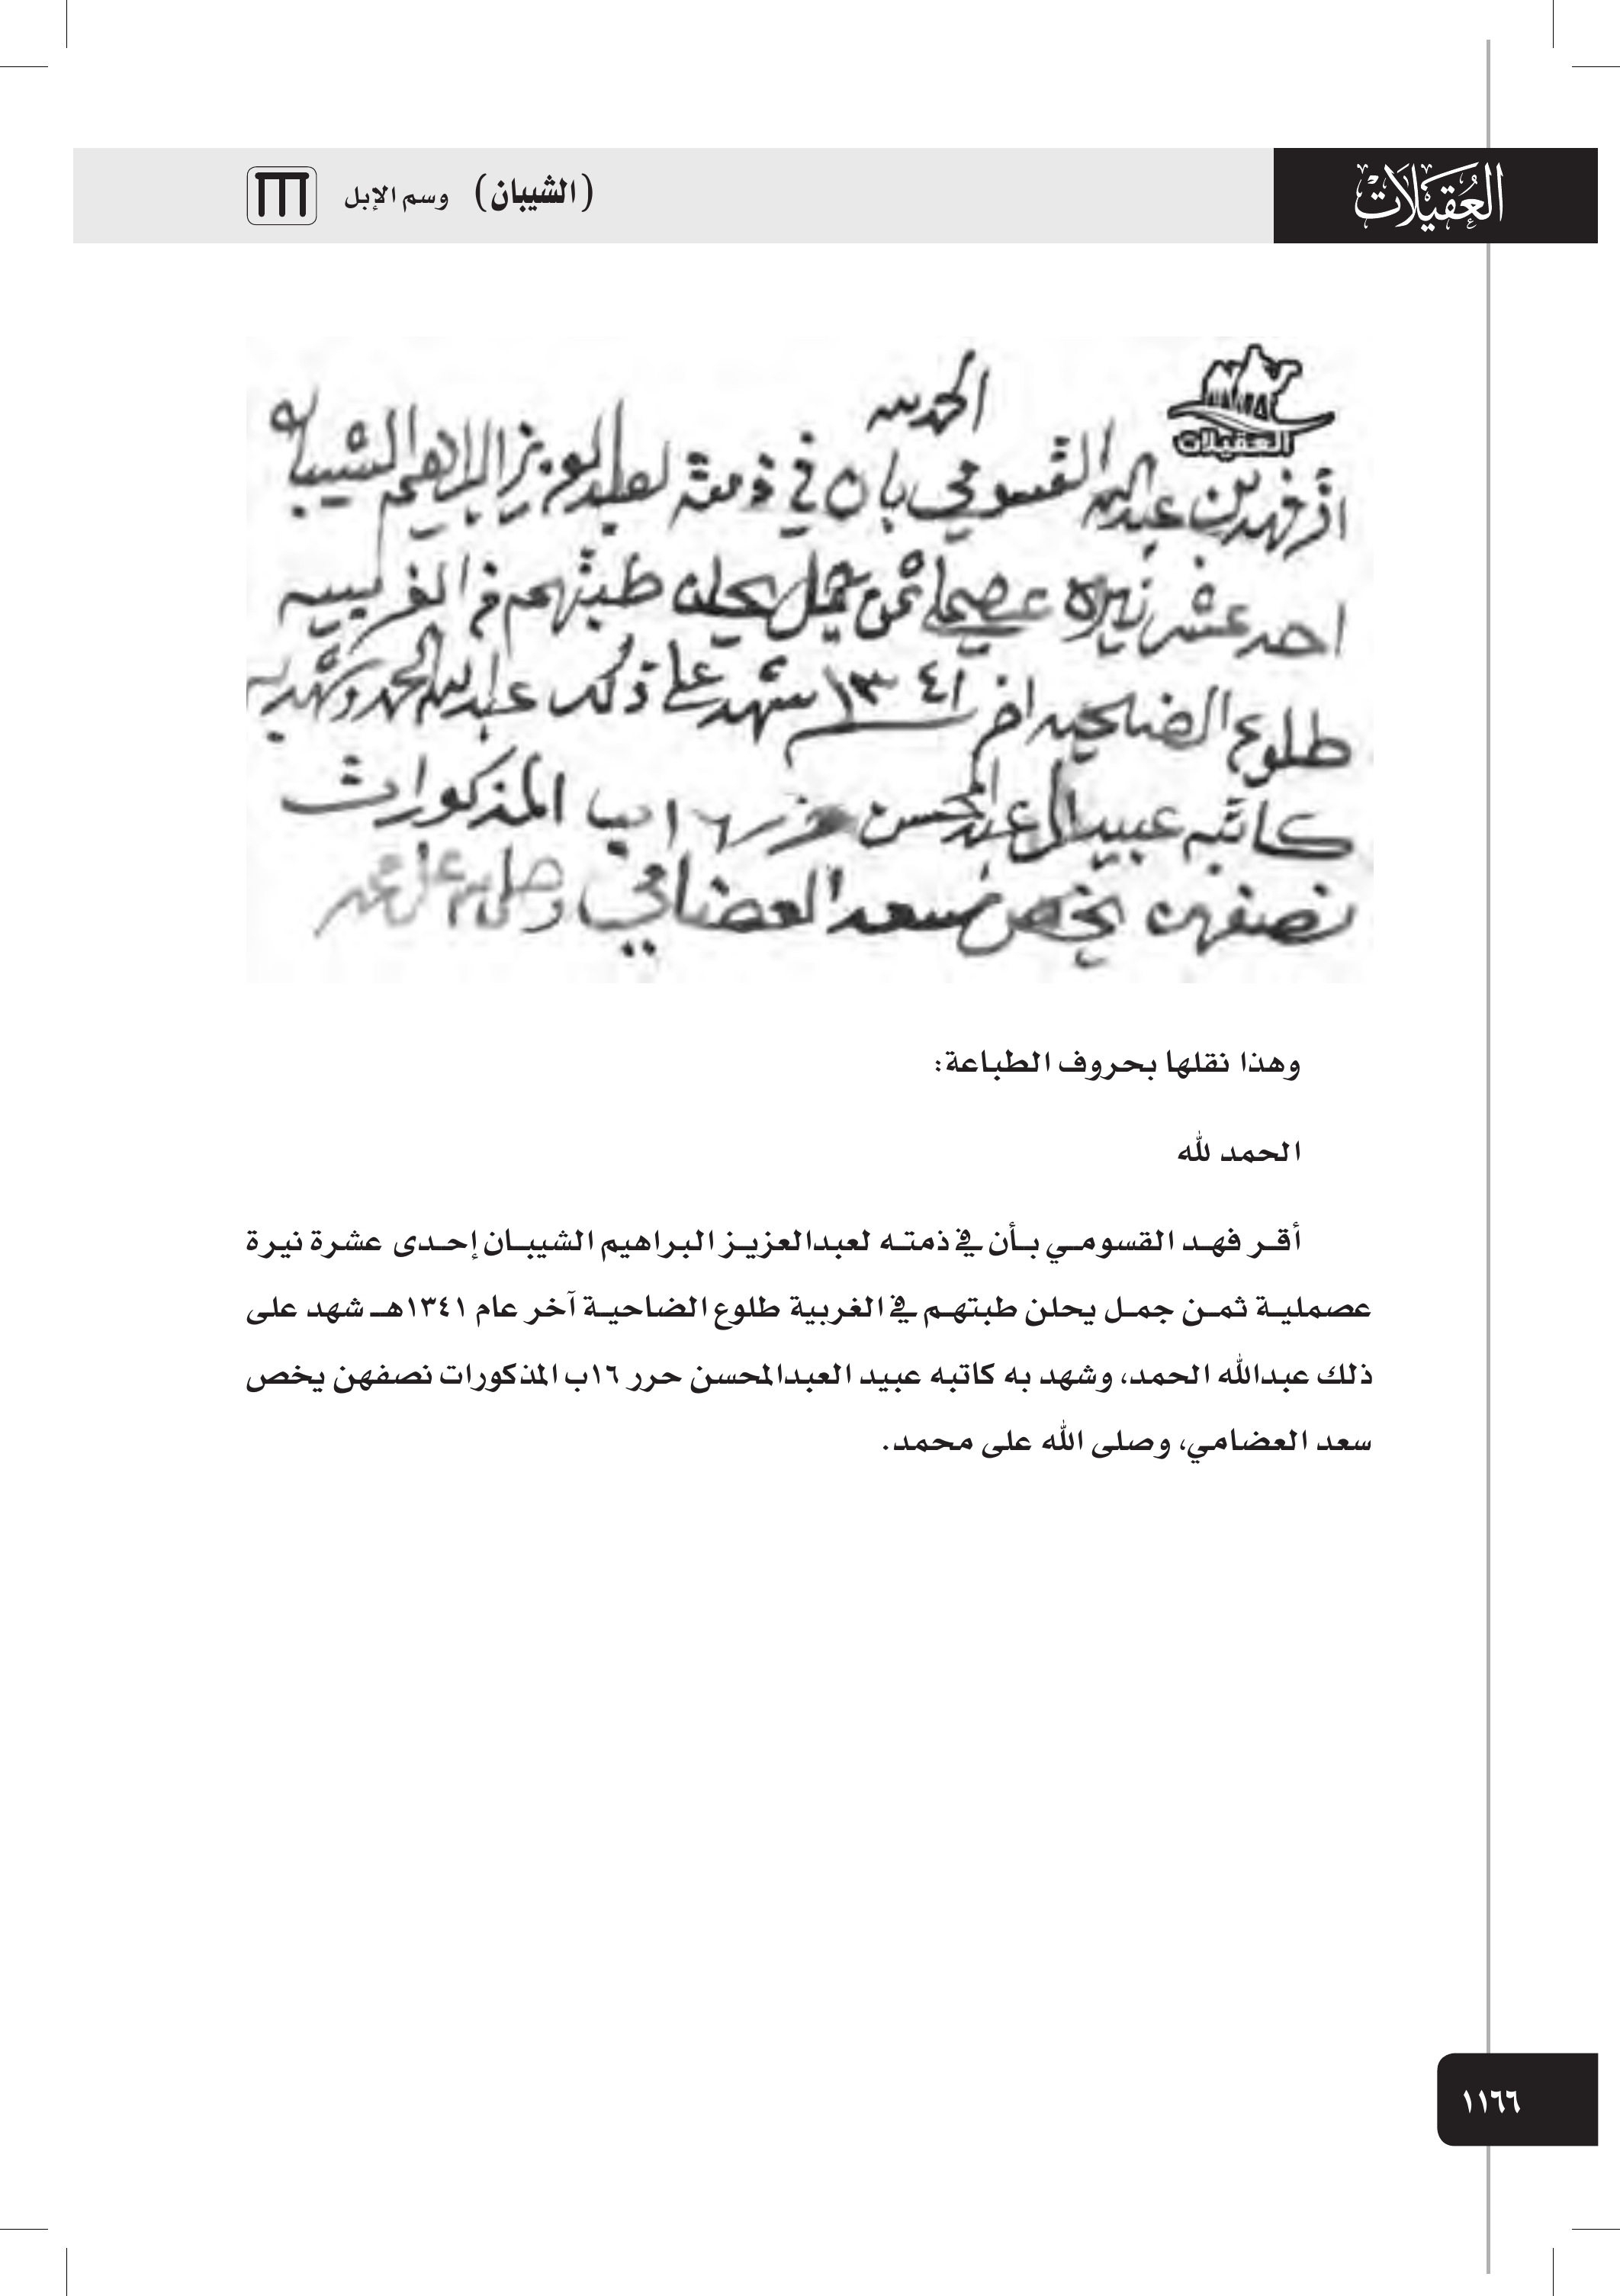 العُقَيلات
(الشيبان) وسم الإبل
العقيلات
الحمد لله
اقر فهد بن عبدالله القسومي بان في ذمته لعبدالعزيز البراهيم الشيبان
احد عشر نيره عصمليه ثمن جمل يحلن طبتهم في الغربيه
طلوع الضاحيه اخر ١٣٤١ شهد على ذلك عبدالله الحمد وشهد به
كاتبه عبيد العبدالمحسن حرر ١٦ ب المذكورات
نصفهن يخص سعد العضامي وصلى الله على محمد
وهذا نقلها بحروف الطباعة:
الحمد لله
أقر فهد القسومي بأن في ذمته لعبدالعزيز البراهيم الشيبان إحدى عشرة نيرة
عصملية ثمن جمل يحلن طبتهم في الغربية طلوع الضاحية آخر عام ١٣٤١هـ شهد على
ذلك عبدالله الحمد، وشهد به كاتبه عبيد العبدالمحسن حرر ١٦ب المذكورات نصفهن يخص
سعد العضامي، وصلى الله على محمد.
١١٦٦